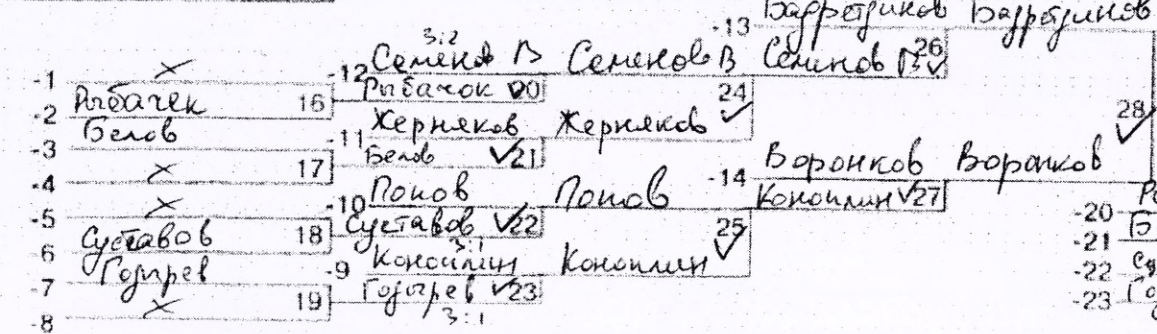 -13 Бадретдинов Бадретдинов
3:2
-12 Семенов В Семенов В Семенов В 26
-1 X
Рыбачек 16 Рыбачок 20 24
-2
Белов -11 Жерняков Жерняков 28
-3 17 Белов 21
X Воронков Воронков
-4 -14
X -10 Попов Попов Коноплин 27
-5 -20
Суставов 18 Суставов 22 25 -21 Б
-6 3:1
-9 Коноплин Коноплин -22
-7 19 23 -23
X 3:1
-8